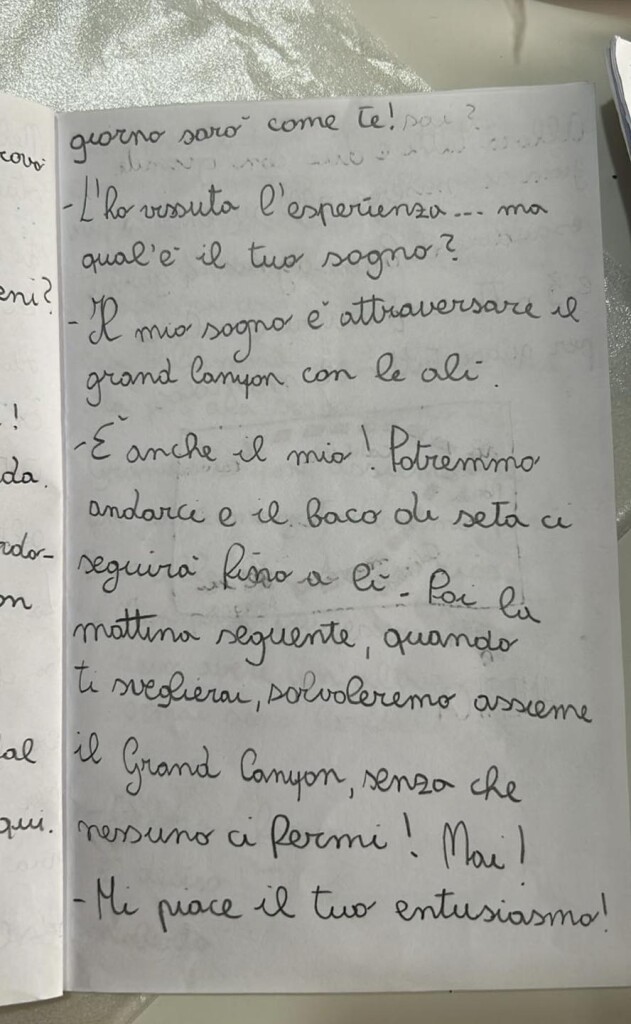 giorno sarò come te! sai?
-L'ho vissuta l'esperienza... ma
qual'è il tuo sogno?
-Il mio sogno è attraversare il
grand Canyon con le ali.
-È anche il mio! Potremmo
andarci e il baco di seta ci
seguirà fino a lì. Poi la
mattina seguente, quando
ti sveglierai, solvoleremo assieme
il Grand Canyon, senza che
nessuno ci fermi! Mai!
-Mi piace il tuo entusiasmo!
eni?
!
da.
on
qui.